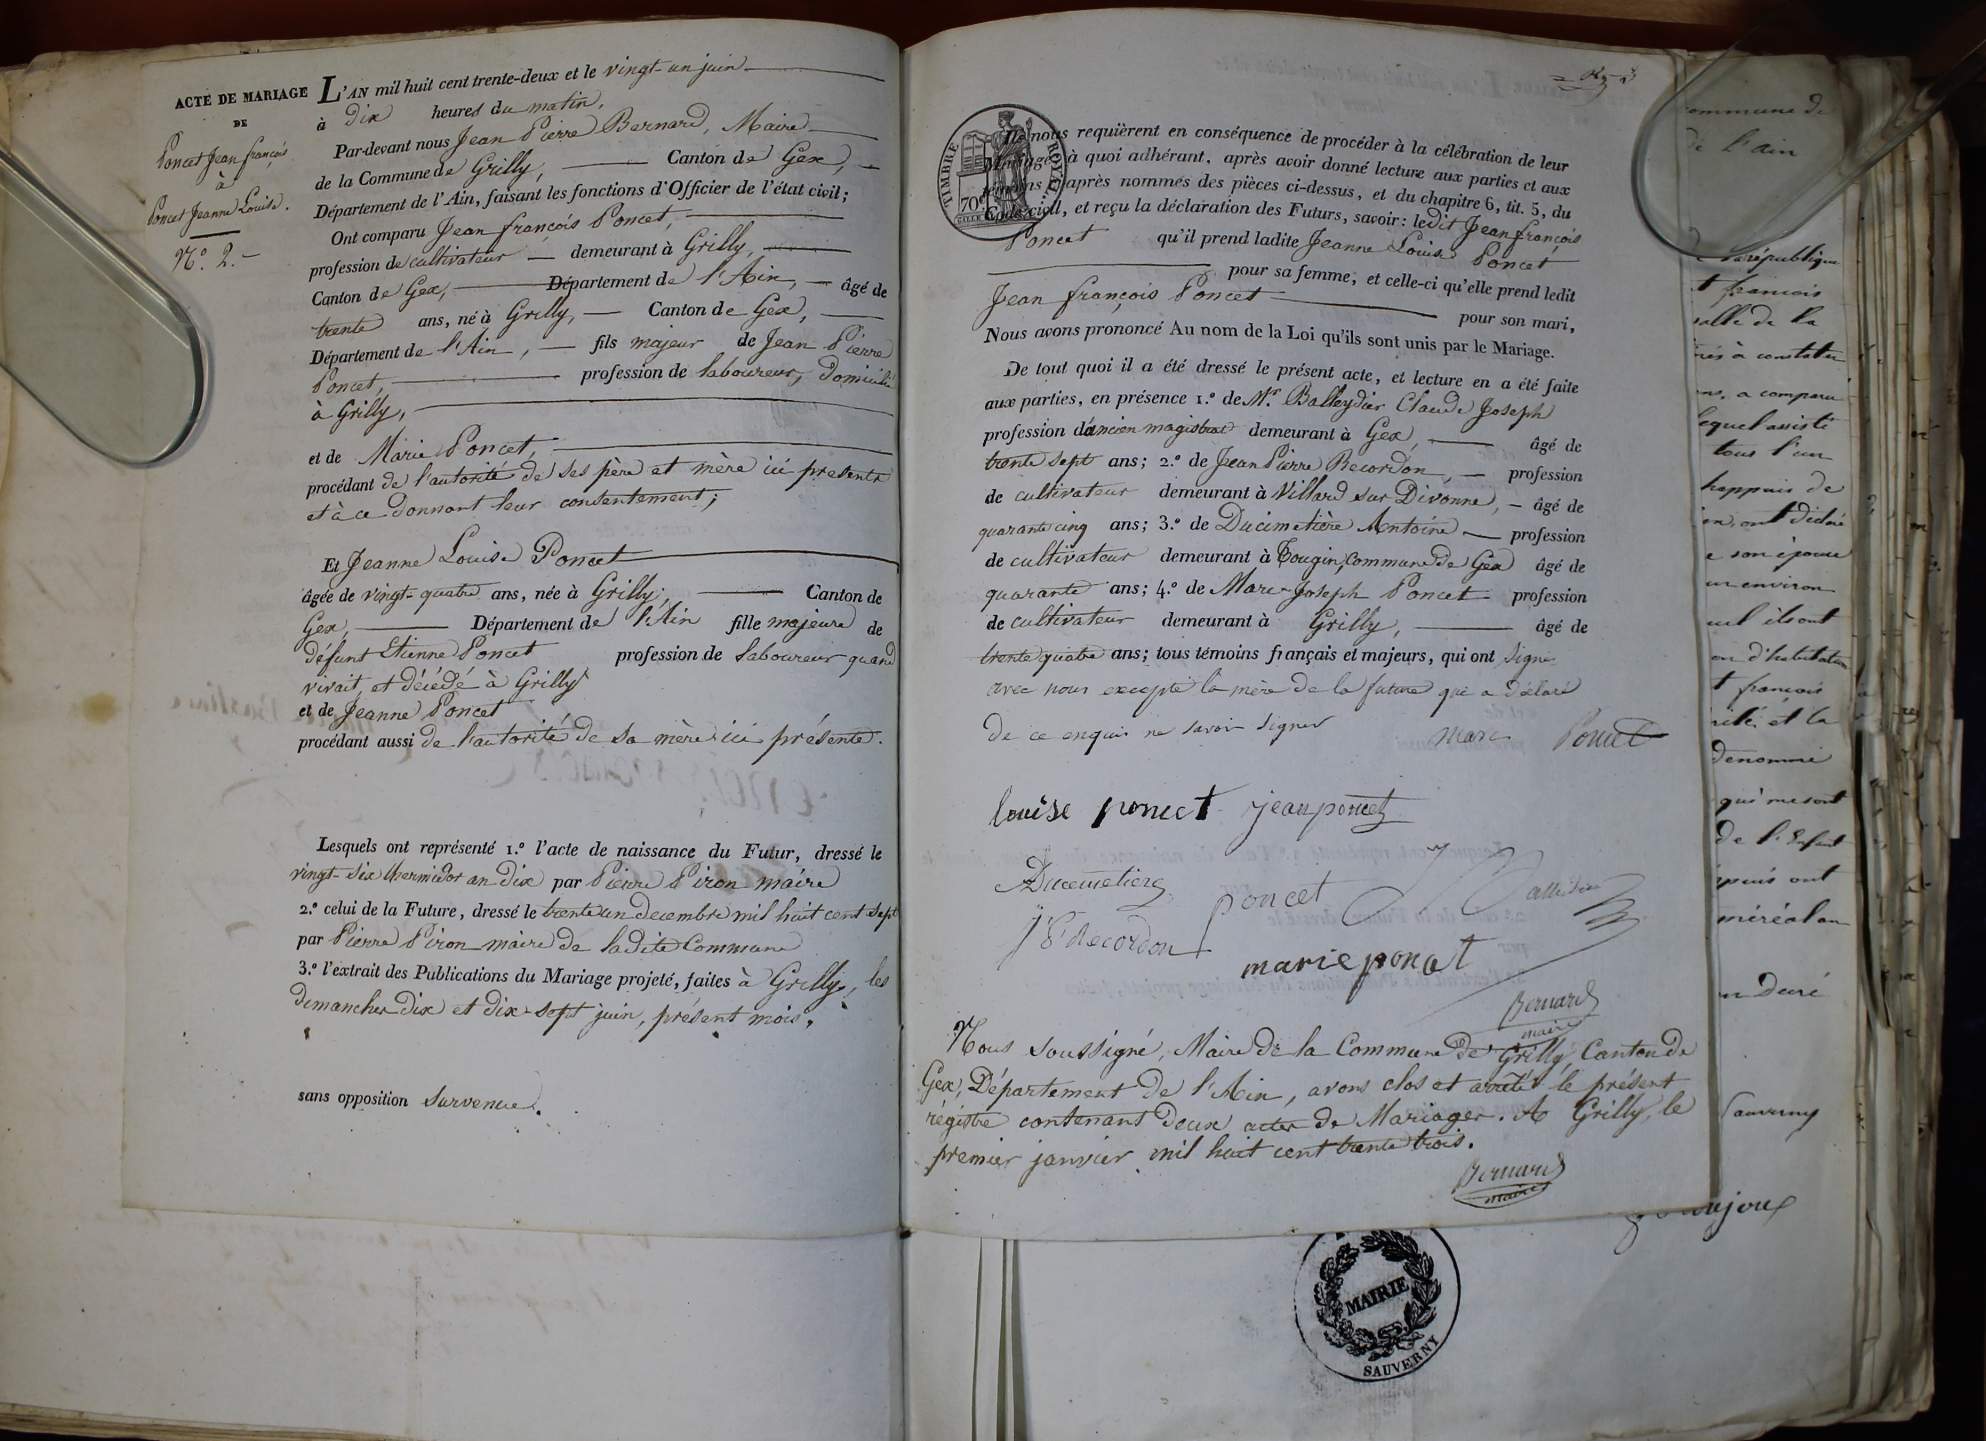 ACTE DE MARIAGE
DE
Poncet Jean françois
à
Poncet Jeanne Louise.
N.º 2.
L'AN mil huit cent trente-deux et le vingt-un juin
à dix heures du matin,
Par-devant nous Jean Pierre Bernard, Maire
de la Commune de Grilly, Canton de Gex,
Département de l'Ain, faisant les fonctions d'Officier de l'état civil;
Ont comparu Jean françois Poncet,
profession de cultivateur demeurant à Grilly,
Canton de Gex, Département de l'Ain, âgé de
trente ans, né à Grilly, Canton de Gex,
Département de l'Ain, fils majeur de Jean Pierre
Poncet, profession de laboureur, domicilié
à Grilly,
et de Marie Poncet,
procédant de l'autorité de ses père et mère ici presents
et à ce donnant leur consentement;
Et Jeanne Louise Poncet
âgée de vingt-quatre ans, née à Grilly, Canton de
Gex, Département de l'Ain fille majeure de
défunt Etienne Poncet profession de laboureur quand
vivait, et décédé à Grilly
et de Jeanne Poncet
procédant aussi de l'autorité de sa mère ici présente.
Lesquels ont représenté 1.º l'acte de naissance du Futur, dressé le
vingt-six thermidor an dix par Pierre Piron maire
2.º celui de la Future, dressé le trente un decembre mil huit cent sept
par Pierre Piron maire de ladite Commune
3.º l'extrait des Publications du Mariage projeté, faites à Grilly, les
dimanches dix et dix-sept juin, présent mois.
sans opposition survenue.
TIMBRE ROYAL
70c
nous requièrent en conséquence de procéder à la célébration de leur
Mariage, à quoi adhérant, après avoir donné lecture aux parties et aux
témoins ci-après nommés des pièces ci-dessus, et du chapitre 6, tit. 5, du
Code civil, et reçu la déclaration des Futurs, savoir: ledit Jean françois
Poncet qu'il prend ladite Jeanne Louise Poncet
pour sa femme, et celle-ci qu'elle prend ledit
Jean françois Poncet
pour son mari,
Nous avons prononcé Au nom de la Loi qu'ils sont unis par le Mariage.
De tout quoi il a été dressé le présent acte, et lecture en a été faite
aux parties, en présence 1.º de Mr. Balleydier Claude Joseph
profession d'ancien magistrat demeurant à Gex, âgé de
trente sept ans; 2.º de Jean Pierre Recordon, profession
de cultivateur demeurant à Villard sur Divonne, âgé de
quarante cinq ans; 3.º de Ducimetière Antoine profession
de cultivateur demeurant à Tougin, Commune de Gex âgé de
quarante ans; 4.º de Marc-Joseph Poncet profession
de cultivateur demeurant à Grilly, âgé de
trente quatre ans; tous témoins français et majeurs, qui ont signé
avec nous excepté la mère de la future qui a déclaré
de ce enquis ne savoir signer
marc Poncet
louise poncet jean poncet
Ducemetiere
poncet
J P Recordon
marie poncet
Bernard
maire
Nous soussigné, Maire de la Commune de Grilly, Canton de
Gex, Département de l'Ain, avons clos et arrêté le présent
régistre contenant deux actes de Mariages. A Grilly, le
premier janvier mil huit cent trente trois.
Bernard
maire
commune de
de l'ain
république
françois
salle de la
a comparu
lequel assisté
tous l'un
ont déclaré
son épouse
environ
ils ont
françois
et la
denommé
qui me sont
de l'Enfant
Sauverny
MAIRIE
SAUVERNY